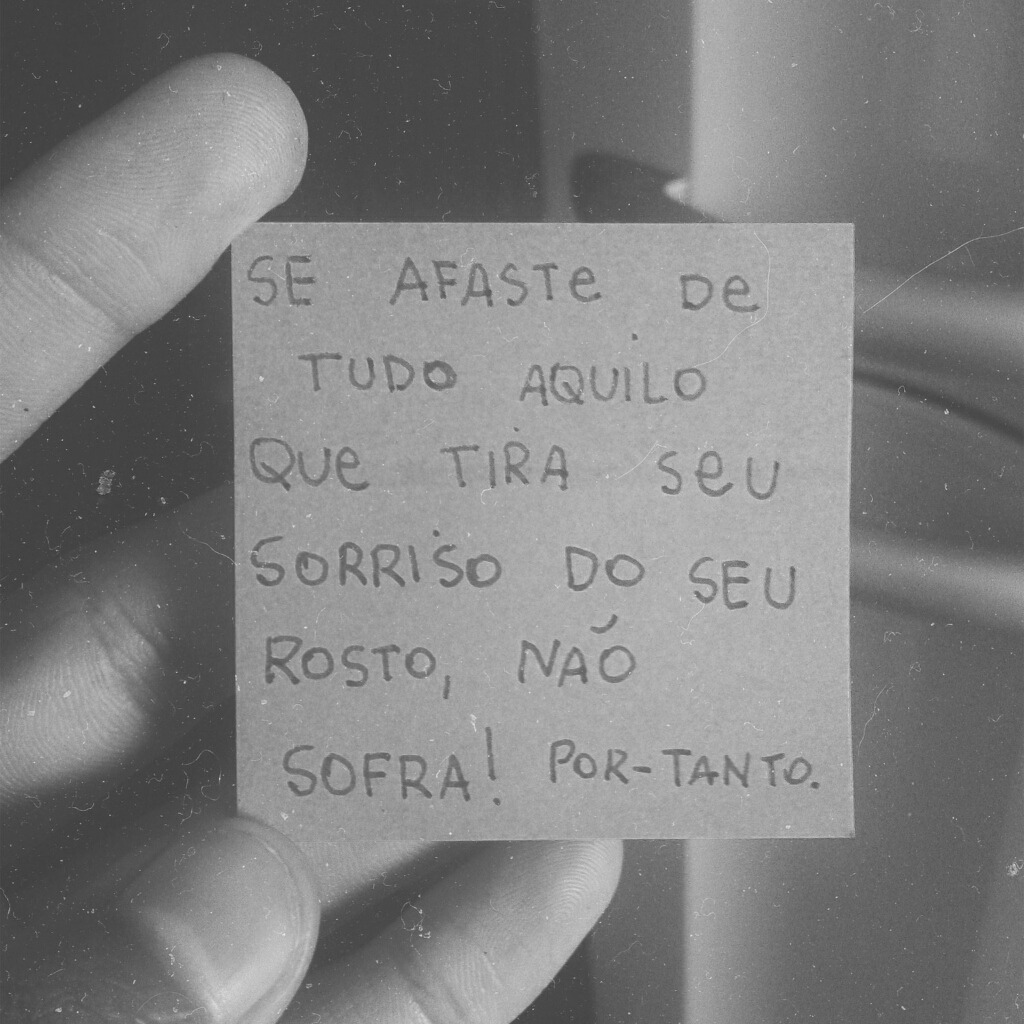 SE AFASTe De
TUDO AQUILO
QUe TIRA SeU
SORRISO DO SEU
ROSTO, NÃO
SOFRA! POR-TANTO.